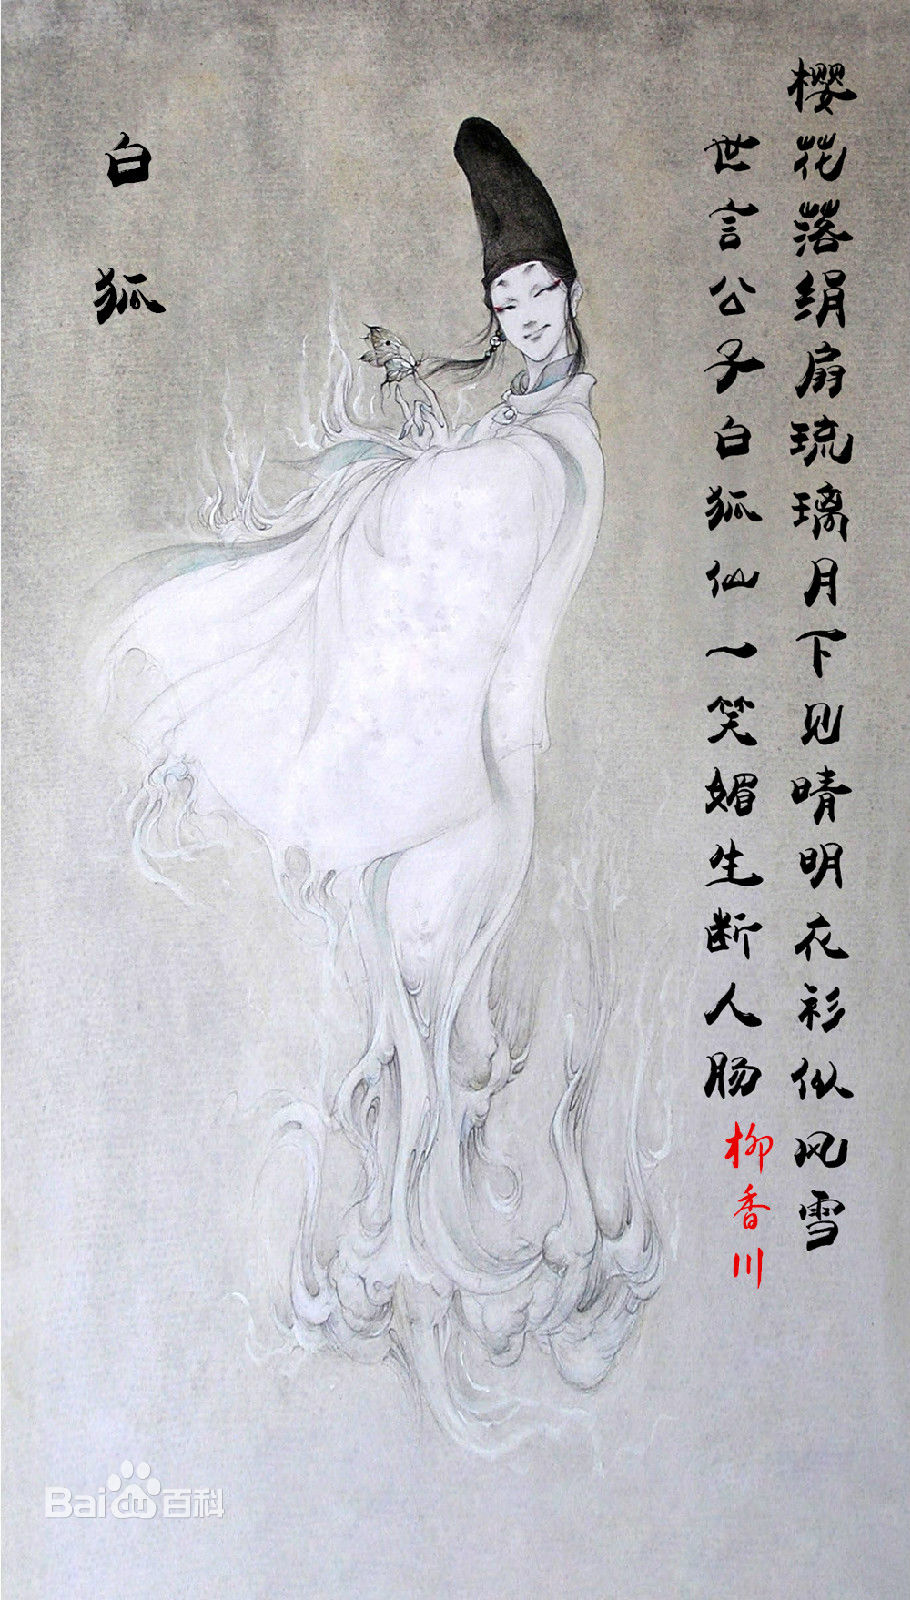 樱花落绢扇琉璃月下见晴明花衫似风雪
世言公子白狐仙一笑媚生断人肠
柳香川
白狐
Baidu百科